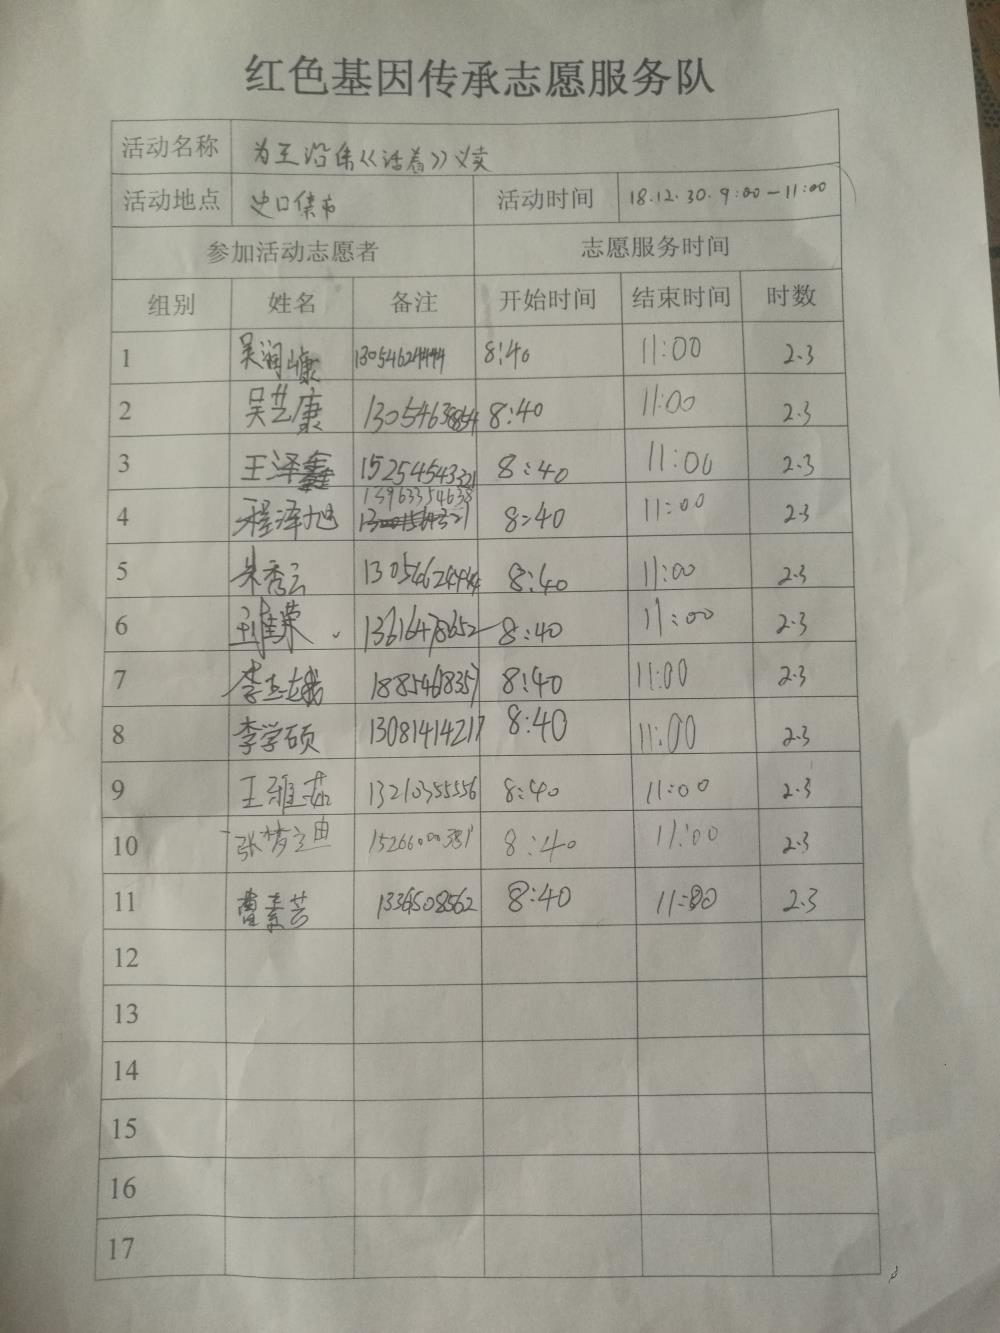 红色基因传承志愿服务队
活动名称 为王沿信《《活着》》义卖
活动地点 史口集市 活动时间 18.12.30.9:00-11:00
参加活动志愿者 志愿服务时间
组别 姓名 备注 开始时间 结束时间 时数
1 吴润康 13054624444 8:40 11:00 2.3
2 吴艺康 13054638854 8:40 11:00 2.3
3 王泽鑫 15254543321 8:40 11:00 2.3
4 程泽旭 13963354638 8:40 11:00 2.3
5 朱秀云 13054624444 8:40 11:00 2.3
6 13616478652 8:40 11:00 2.3
7 李 1885468357 8:40 11:00 2.3
8 李学硕 13081414217 8:40 11:00 2.3
9 王雅茹 13210355556 8:40 11:00 2.3
10 张梦迪 8:40 11:00 2.3
11 曹素芸 1336508562 8:40 11:00 2.3
12
13
14
15
16
17